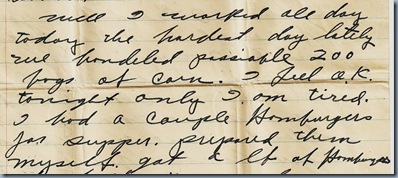 well I worked all day
today the hardest day lately
we handeled possiable 200
bags of corn. I feel O.K.
tonight only I am tired.
I had a couple Hamburgers
for supper. prepared them
myself. got a lb of Hamburger